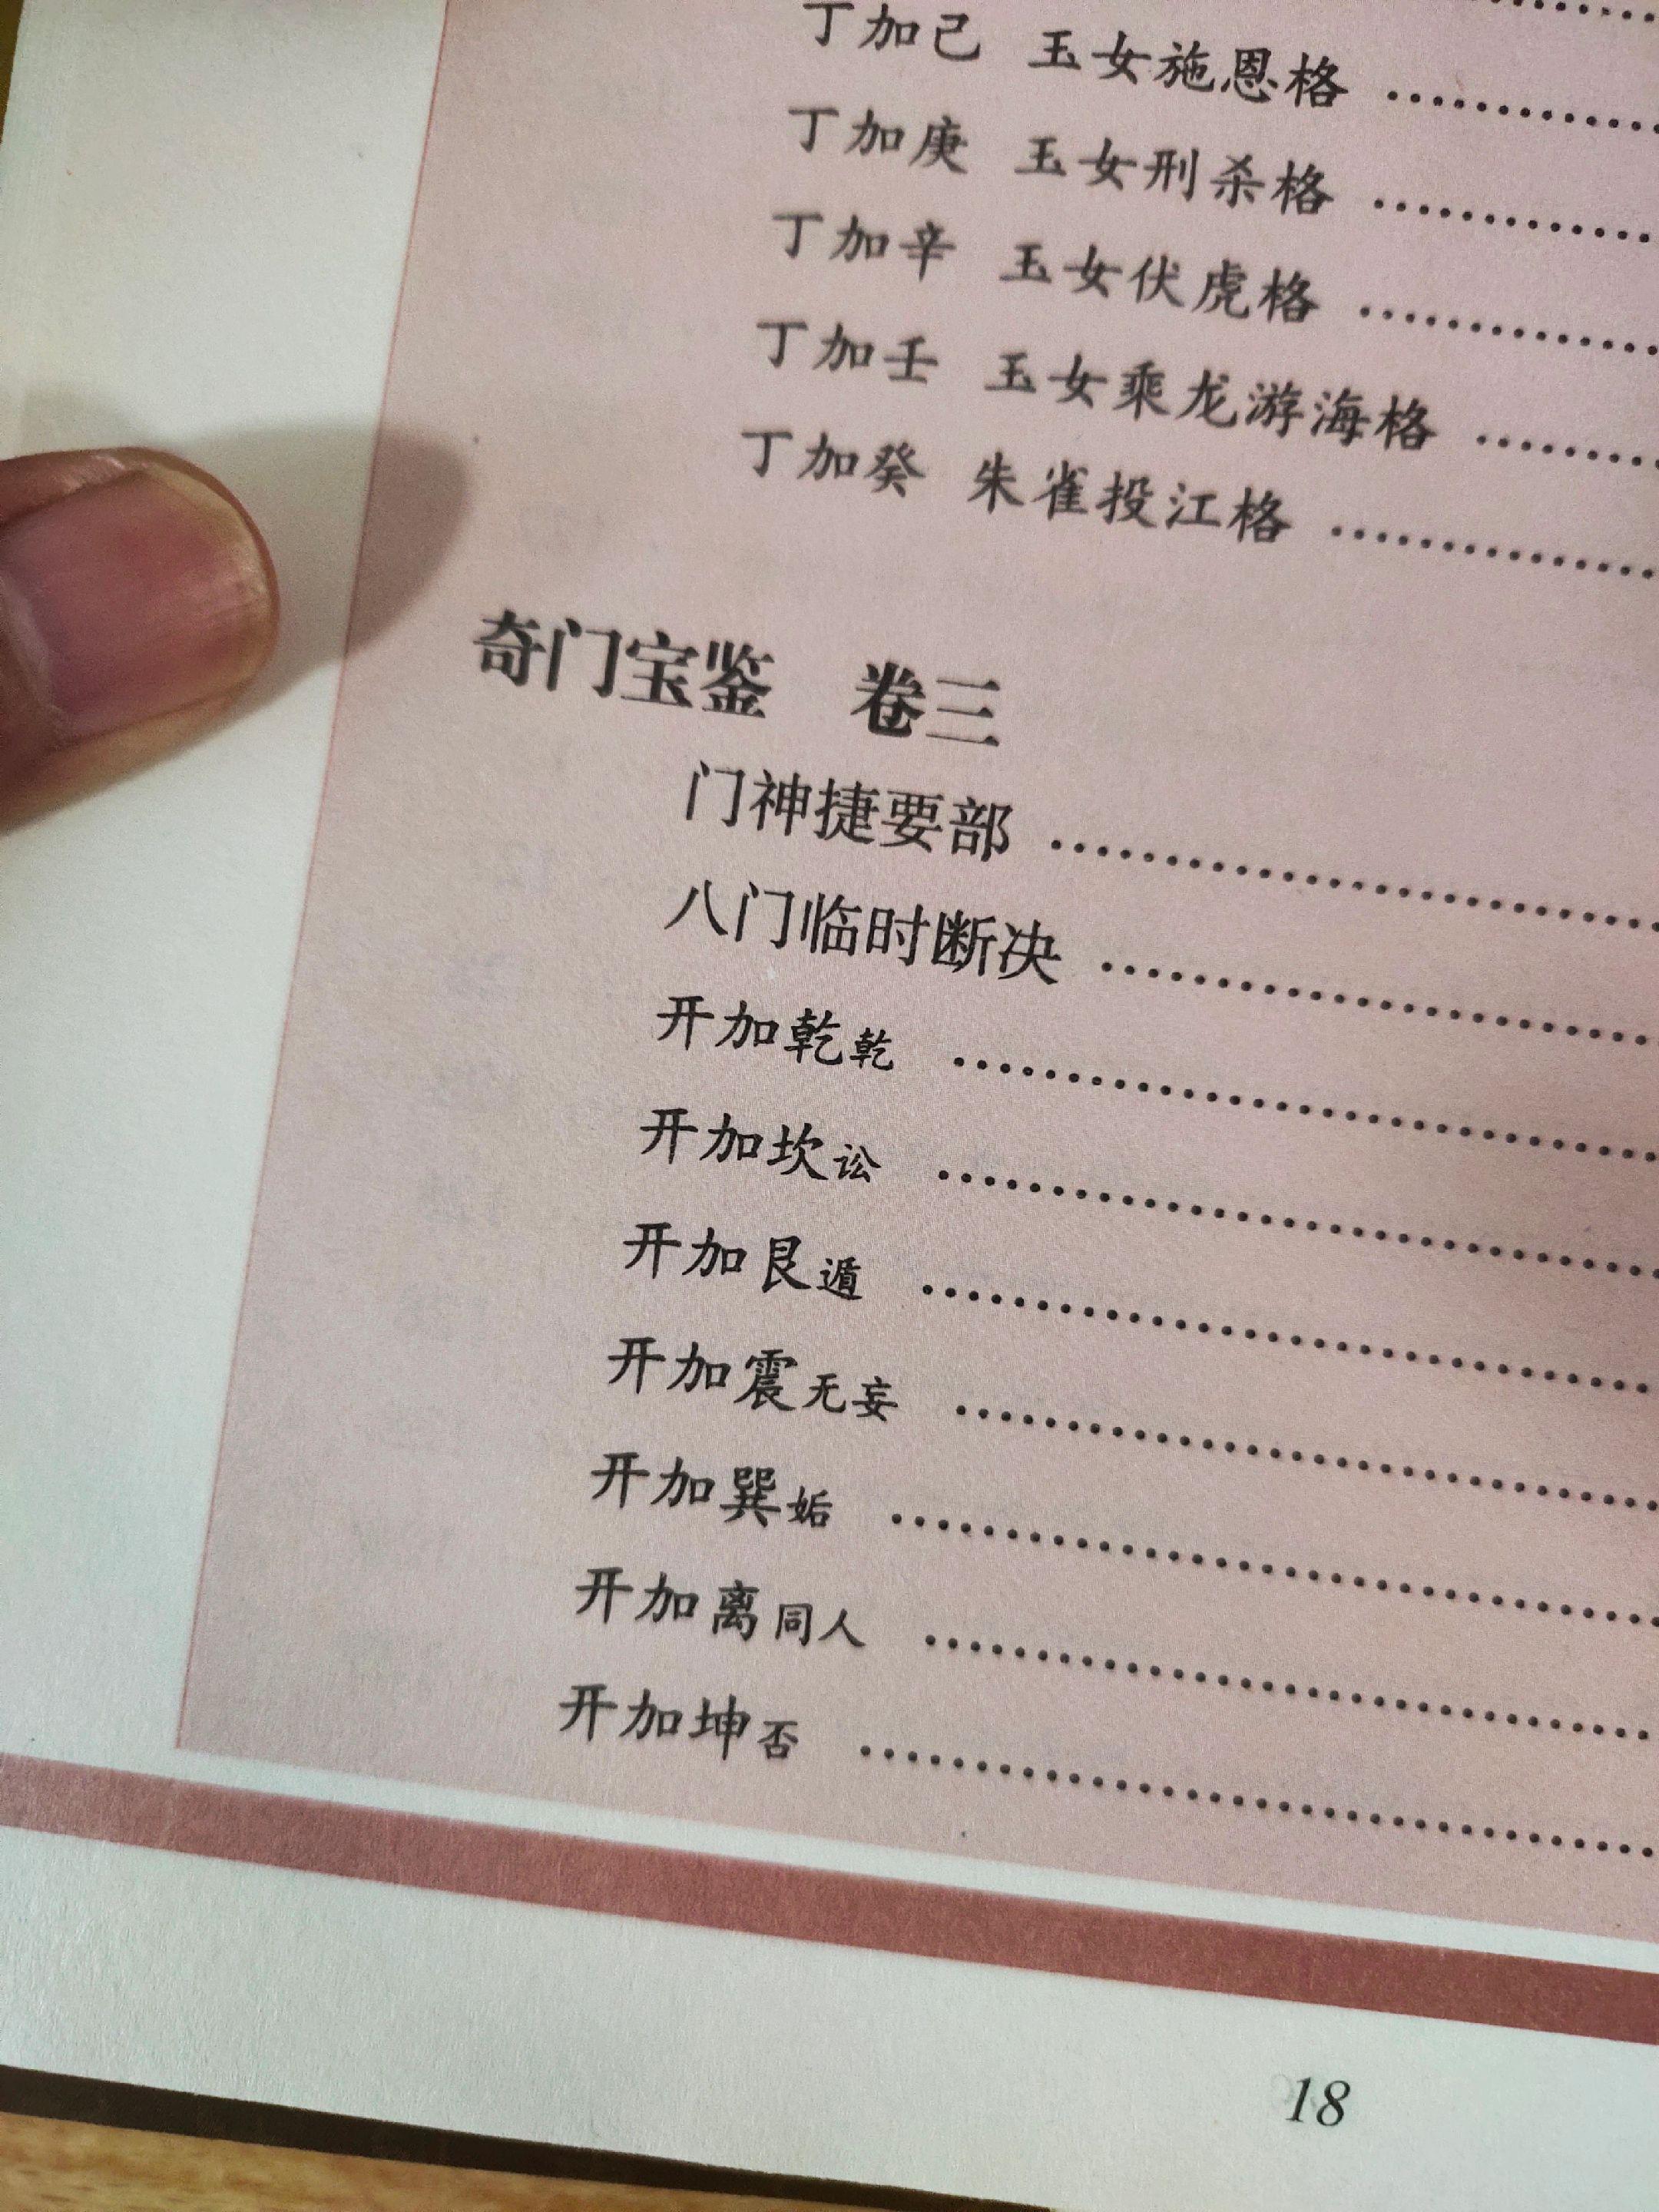 丁加己 玉女施恩格 ……
丁加庚 玉女刑杀格 ……
丁加辛 玉女伏虎格 ……
丁加壬 玉女乘龙游海格 ……
丁加癸 朱雀投江格 ……
奇门宝鉴 卷三
门神捷要部 ……
八门临时断决 ……
开加乾乾 ……
开加坎讼 ……
开加艮遁 ……
开加震无妄 ……
开加巽姤 ……
开加离同人 ……
开加坤否 ……
18